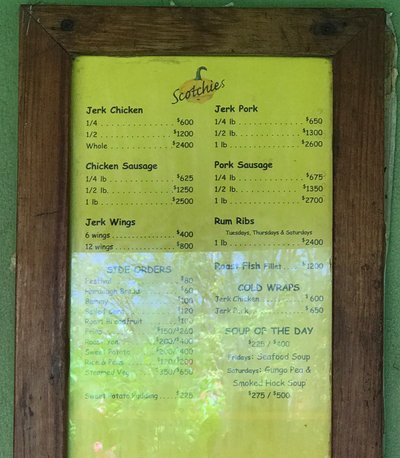 Scotchies
Jerk Chicken
1/4 ........ $600
1/2 ........ $1200
Whole ........ $2400
Chicken Sausage
1/4 lb ........ $625
1/2 lb. ........ $1250
1 lb ........ $2500
Jerk Wings
6 wings ........ $400
12 wings ........ $800
SIDE ORDERS
Festival $80
Hardough Bread $60
Bammy
$120
Roast Breadfruit
$200/$400
Sweet Potato $200/$400
Rice & Peas
Steamed Veg $350/$650
Sweet Potato Pudding ..... $275
Jerk Pork
1/4 lb ........ $650
1/2 lb. ........ $1300
1 lb ........ $2600
Pork Sausage
1/4 lb ........ $675
1/2 lb. ........ $1350
1 lb ........ $2700
Rum Ribs
Tuesdays, Thursdays & Saturdays
1 lb ........ $2400
Roast Fish Fillet .... $1200
COLD WRAPS
Jerk Chicken ........ $600
Jerk Pork ........ $650
SOUP OF THE DAY
Fridays: Seafood Soup
Saturdays: Gungo Pea &
Smoked Hock Soup
$275 / $500